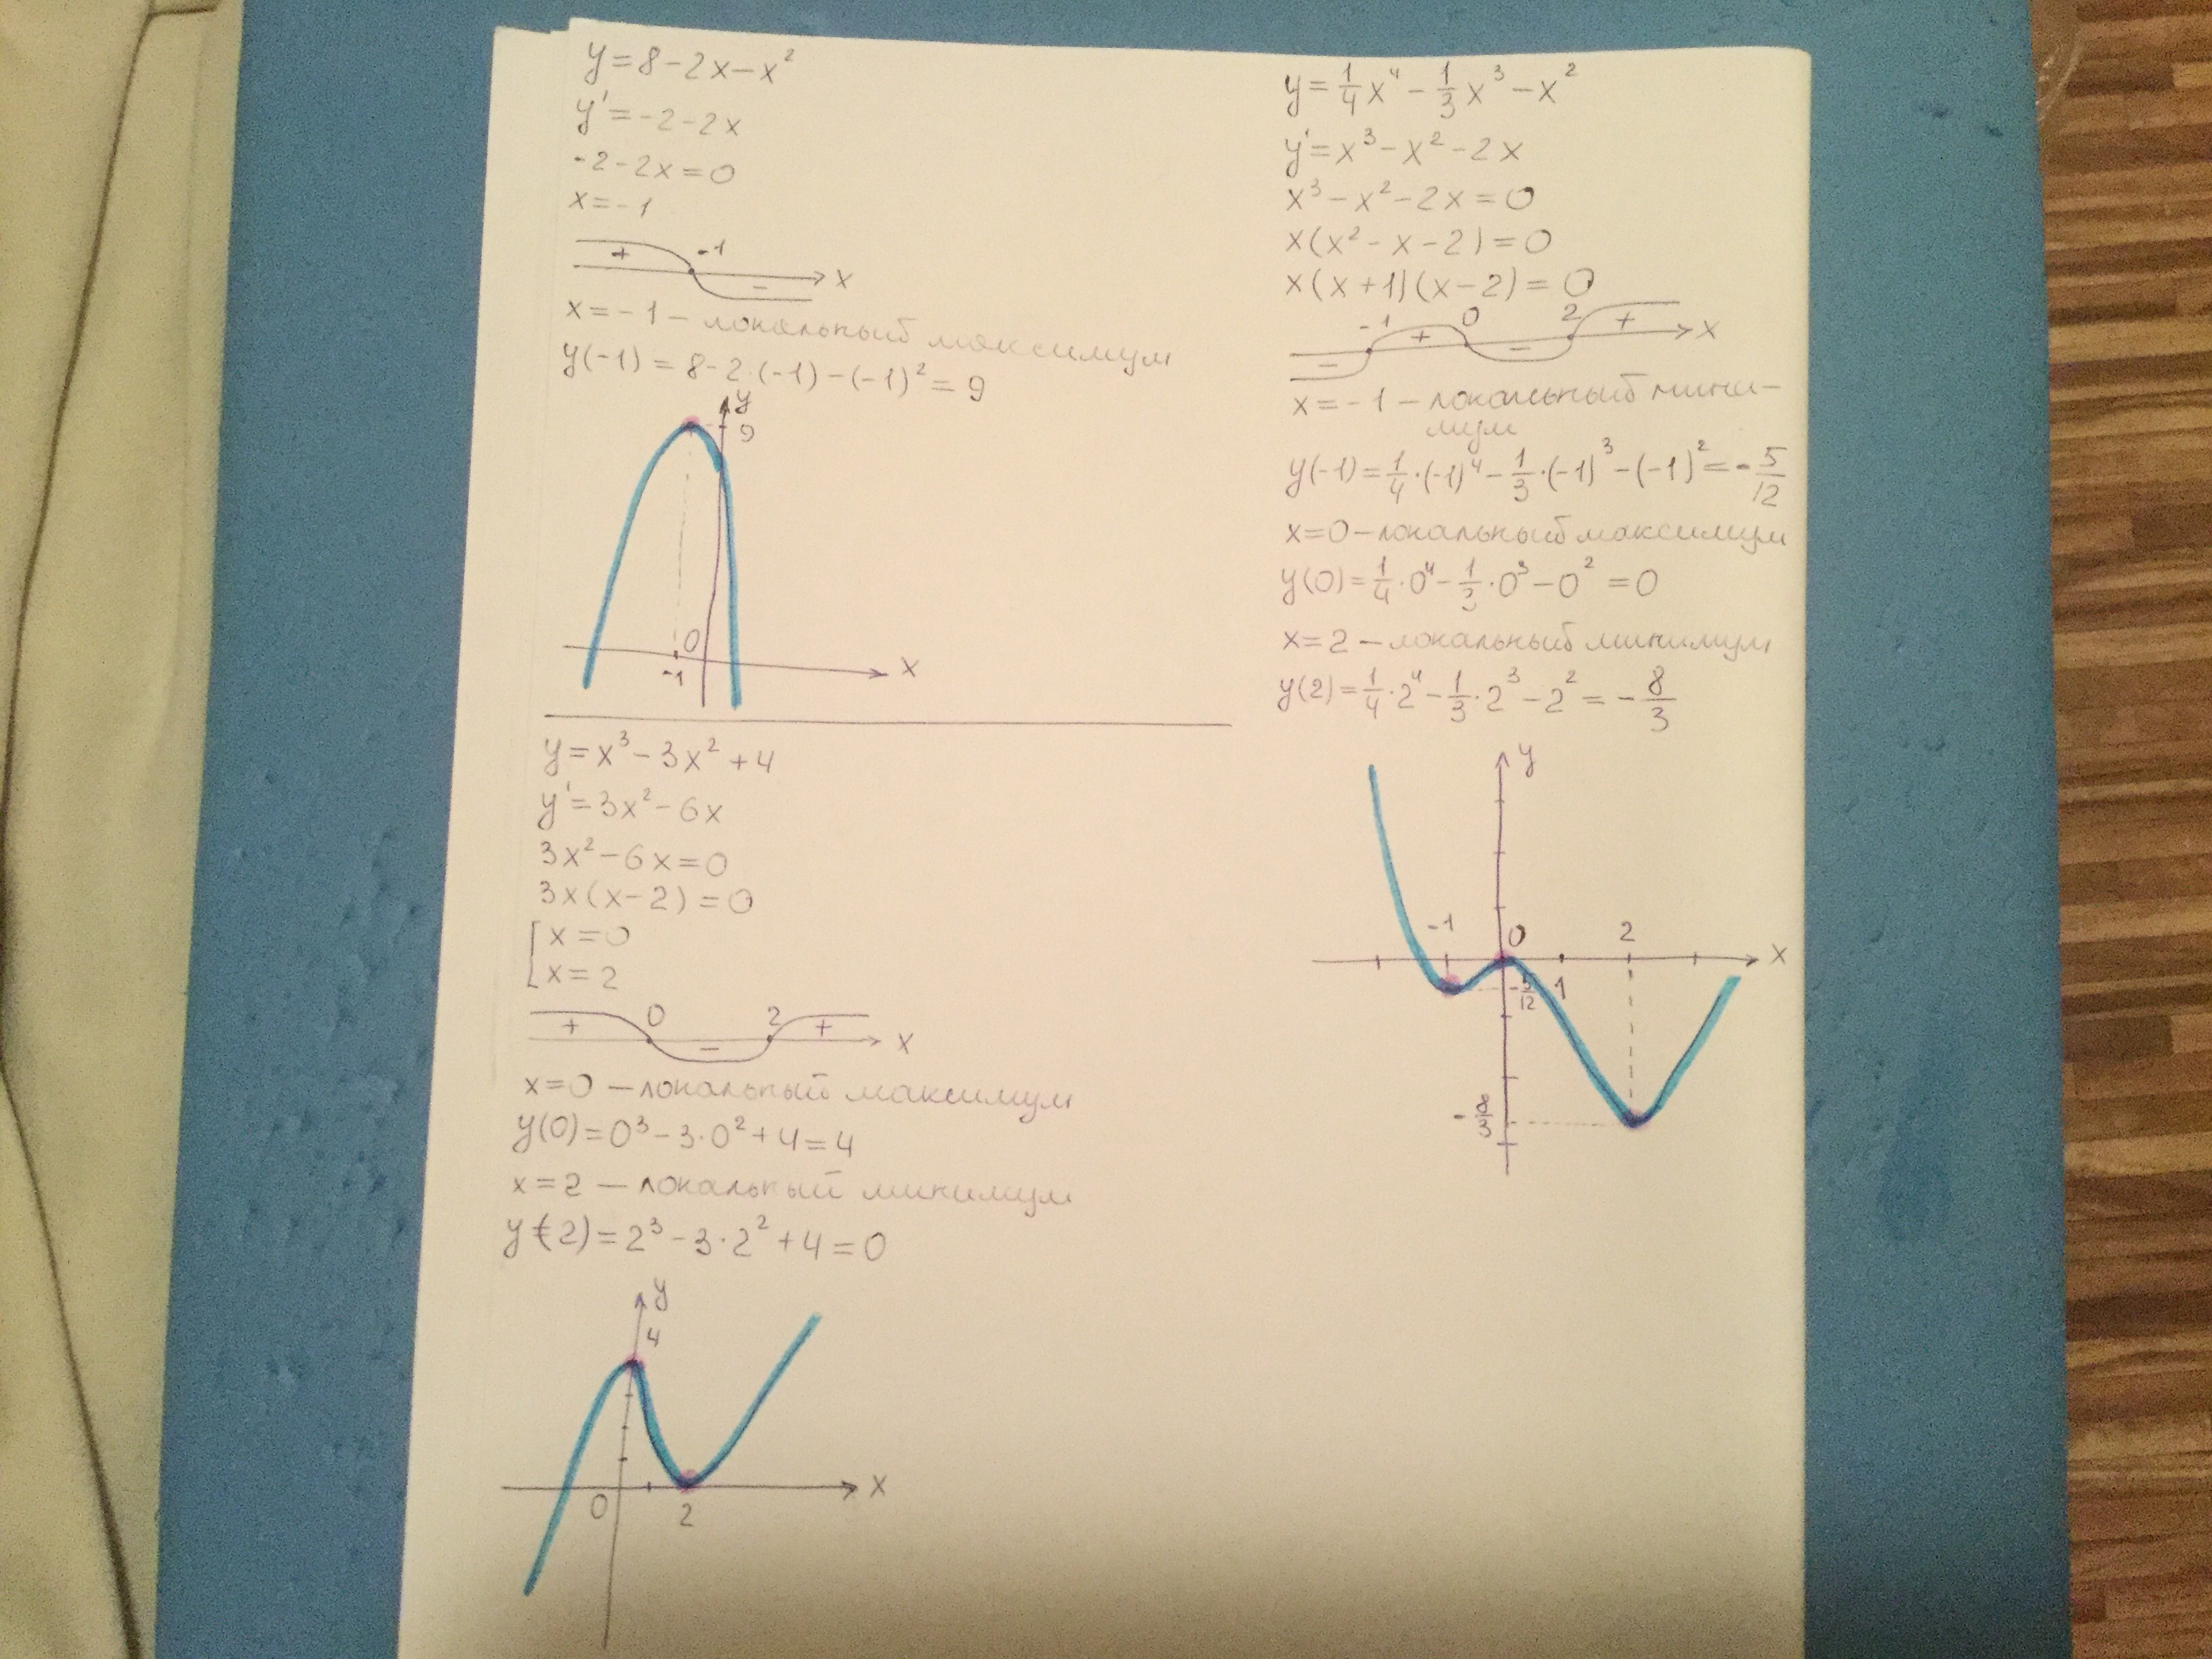 y = 8 - 2x - x²
y' = -2 - 2x
-2 - 2x = 0
x = -1
+ -1 - x
x = -1 – локальный максимум
y(-1) = 8 - 2·(-1) - (-1)² = 9
y
9
0
-1
x
y = x³ - 3x² + 4
y' = 3x² - 6x
3x² - 6x = 0
3x(x - 2) = 0
[ x = 0
x = 2
+ 0 - 2 + x
x = 0 — локальный максимум
y(0) = 0³ - 3·0² + 4 = 4
x = 2 — локальный минимум
y(2) = 2³ - 3·2² + 4 = 0
y
4
x
0 2
y = 1/4 x⁴ - 1/3 x³ - x²
y' = x³ - x² - 2x
x³ - x² - 2x = 0
x(x² - x - 2) = 0
x(x + 1)(x - 2) = 0
- -1 + 0 - 2 + x
x = -1 – локальный мини-
мум
y(-1) = 1/4·(-1)⁴ - 1/3·(-1)³ - (-1)² = -5/12
x = 0 – локальный максимум
y(0) = 1/4·0⁴ - 1/3·0³ - 0² = 0
x = 2 – локальный минимум
y(2) = 1/4·2⁴ - 1/3·2³ - 2² = -8/3
y
-1 0 2 x
-5/12 1
-8/3